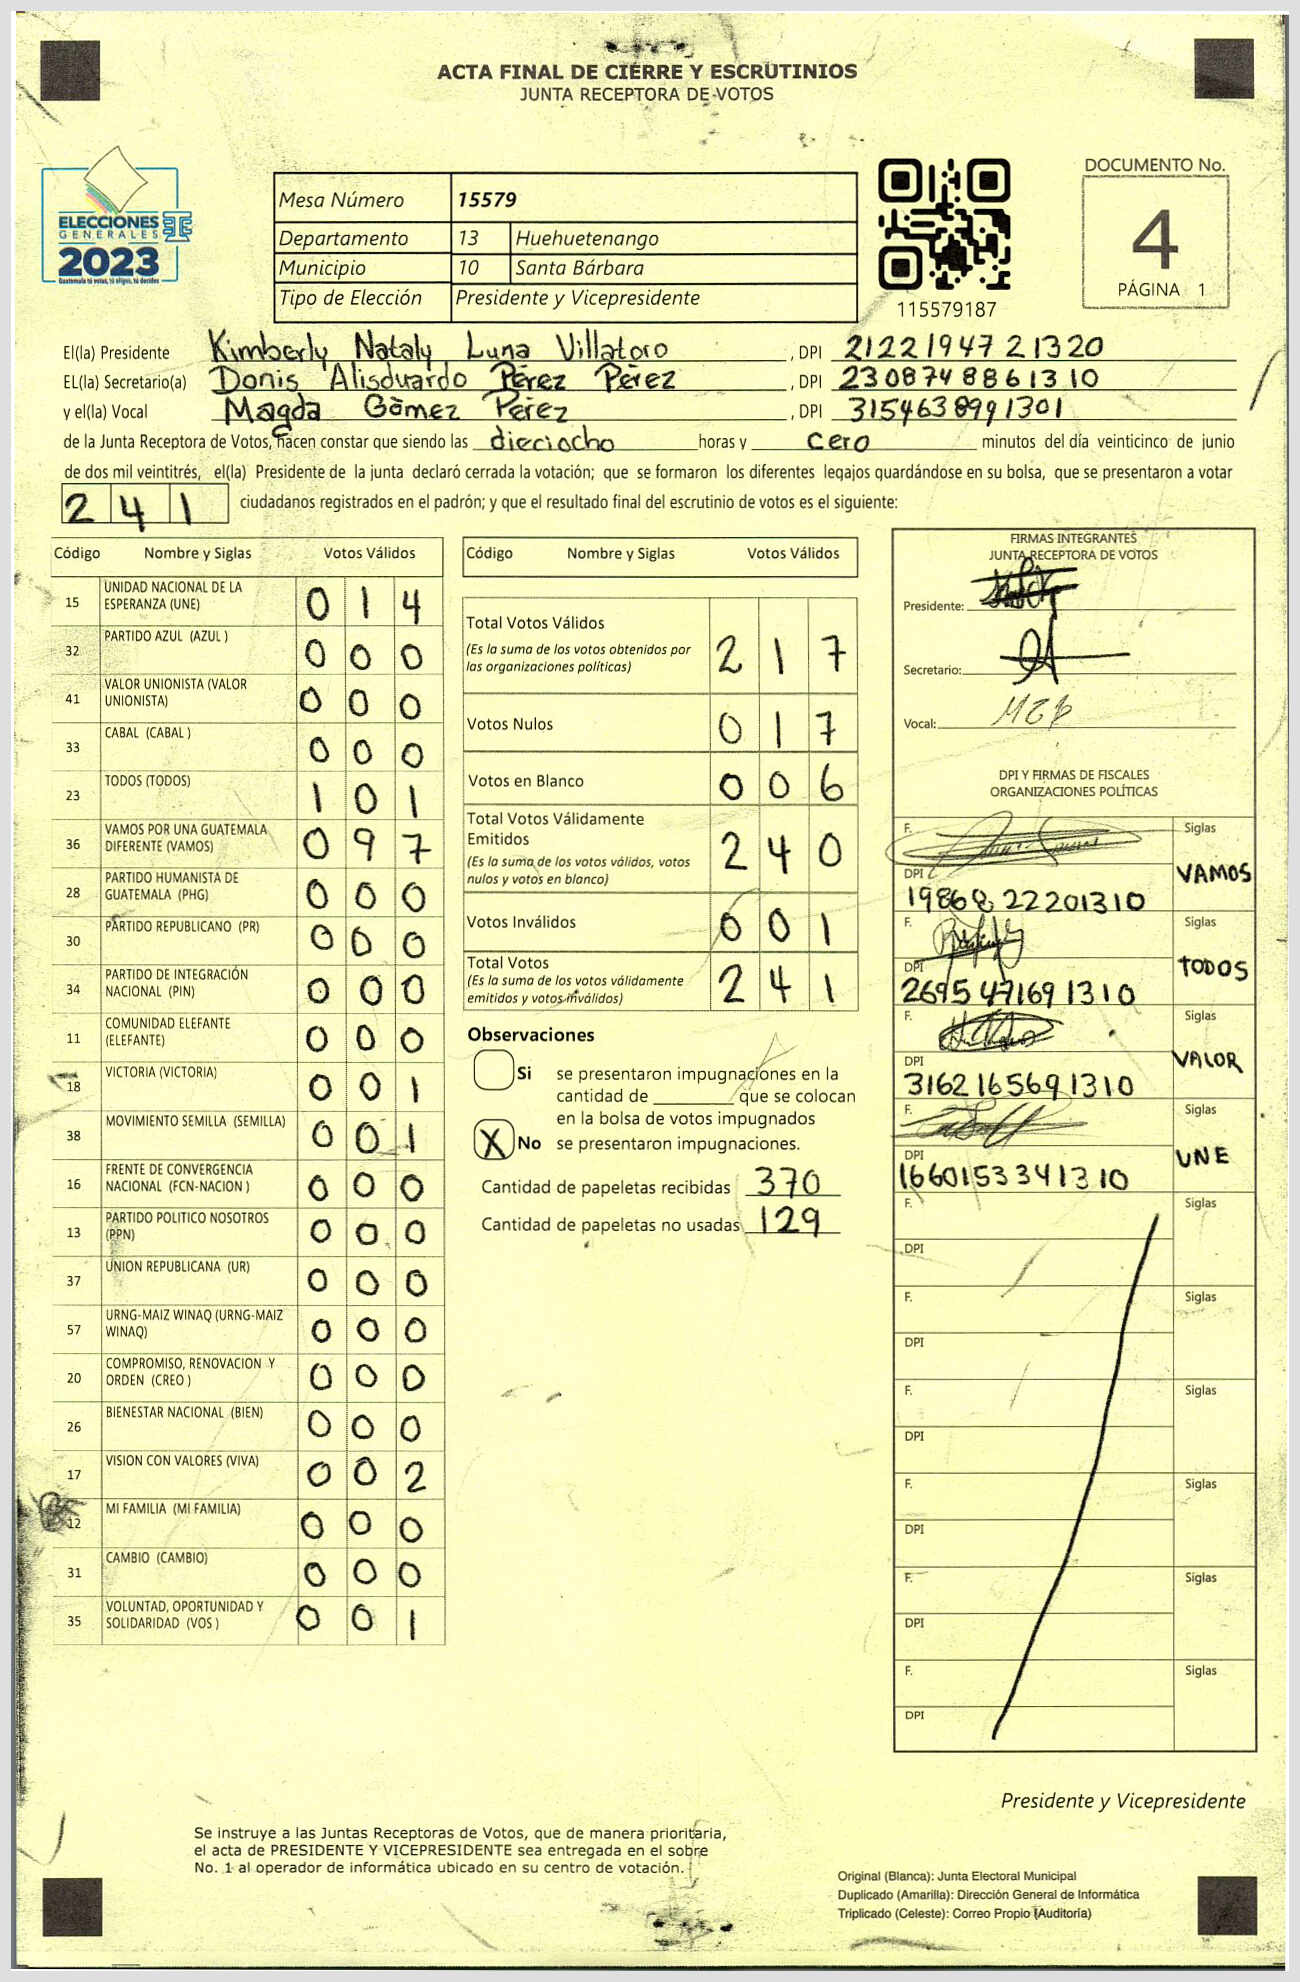 ACTA FINAL DE CIERRE Y ESCRUTINIOS
JUNTA RECEPTORA DE VOTOS
ELECCIONES
GENERALES
2023
Guatemala tú votas, tú eliges, tú decides
Mesa Número 15579
Departamento 13 Huehuetenango
Municipio 10 Santa Bárbara
Tipo de Elección Presidente y Vicepresidente
115579187
DOCUMENTO No.
4
PÁGINA 1
El(la) Presidente Kimberly Nataly Luna Villatoro, DPI 2122194721320
EL(la) Secretario(a) Donis Alisduardo Pérez Pérez, DPI 2308748861310
y el(la) Vocal Magda Gómez Pérez, DPI 3154638991301
de la Junta Receptora de Votos, hacen constar que siendo las dieciocho horas y cero minutos del día veinticinco de junio
de dos mil veintitrés, el(la) Presidente de la junta declaró cerrada la votación; que se formaron los diferentes legajos guardándose en su bolsa, que se presentaron a votar
241 ciudadanos registrados en el padrón; y que el resultado final del escrutinio de votos es el siguiente:
Código Nombre y Siglas Votos Válidos
15 UNIDAD NACIONAL DE LA ESPERANZA (UNE) 014
32 PARTIDO AZUL (AZUL ) 000
41 VALOR UNIONISTA (VALOR UNIONISTA) 000
33 CABAL (CABAL ) 000
23 TODOS (TODOS) 101
36 VAMOS POR UNA GUATEMALA DIFERENTE (VAMOS) 097
28 PARTIDO HUMANISTA DE GUATEMALA (PHG) 000
30 PARTIDO REPUBLICANO (PR) 000
34 PARTIDO DE INTEGRACIÓN NACIONAL (PIN) 000
11 COMUNIDAD ELEFANTE (ELEFANTE) 000
18 VICTORIA (VICTORIA) 001
38 MOVIMIENTO SEMILLA (SEMILLA) 001
16 FRENTE DE CONVERGENCIA NACIONAL (FCN-NACION ) 000
13 PARTIDO POLITICO NOSOTROS (PPN) 000
37 UNION REPUBLICANA (UR) 000
57 URNG-MAIZ WINAQ (URNG-MAIZ WINAQ) 000
20 COMPROMISO, RENOVACION Y ORDEN (CREO ) 000
26 BIENESTAR NACIONAL (BIEN) 000
17 VISION CON VALORES (VIVA) 002
12 MI FAMILIA (MI FAMILIA) 000
31 CAMBIO (CAMBIO) 000
35 VOLUNTAD, OPORTUNIDAD Y SOLIDARIDAD (VOS ) 001
Código Nombre y Siglas Votos Válidos
Total Votos Válidos 217
(Es la suma de los votos obtenidos por
las organizaciones políticas)
Votos Nulos 017
Votos en Blanco 006
Total Votos Válidamente
Emitidos 240
(Es la suma de los votos válidos, votos
nulos y votos en blanco)
Votos Inválidos 001
Total Votos 241
(Es la suma de los votos válidamente
emitidos y votos inválidos)
Observaciones
Si se presentaron impugnaciones en la
cantidad de ________ que se colocan
en la bolsa de votos impugnados
X No se presentaron impugnaciones.
Cantidad de papeletas recibidas 370
Cantidad de papeletas no usadas 129
FIRMAS INTEGRANTES
JUNTA RECEPTORA DE VOTOS
Presidente:
Secretario:
Vocal:
DPI Y FIRMAS DE FISCALES
ORGANIZACIONES POLÍTICAS
F. Siglas
DPI VAMOS
19868 22201310
F. Siglas
DPI TODOS
2695 471691310
F. Siglas
DPI VALOR
3162165691310
F. Siglas
DPI UNE
1660153341310
F. Siglas
DPI
F. Siglas
DPI
F. Siglas
DPI
F. Siglas
DPI
F. Siglas
DPI
F. Siglas
DPI
Presidente y Vicepresidente
Se instruye a las Juntas Receptoras de Votos, que de manera prioritaria,
el acta de PRESIDENTE Y VICEPRESIDENTE sea entregada en el sobre
No. 1 al operador de informática ubicado en su centro de votación.
Original (Blanca): Junta Electoral Municipal
Duplicado (Amarilla): Dirección General de Informática
Triplicado (Celeste): Correo Propio (Auditoría)